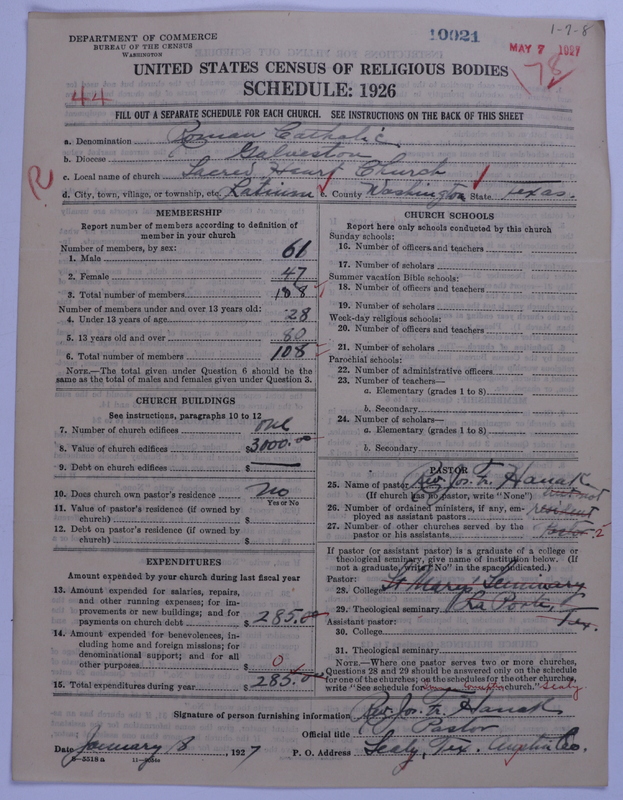 1-7-8
DEPARTMENT OF COMMERCE
BUREAU OF THE CENSUS
WASHINGTON
10021
MAY 7 1927
78
UNITED STATES CENSUS OF RELIGIOUS BODIES
SCHEDULE: 1926
44
FILL OUT A SEPARATE SCHEDULE FOR EACH CHURCH. SEE INSTRUCTIONS ON THE BACK OF THIS SHEET
a. Denomination Roman Catholic
b. Diocese Galveston
c. Local name of church Sacred Heart Church
R
d. City, town, village, or township, etc. Latium e. County Washington State Texas.
MEMBERSHIP
Report number of members according to definition of
member in your church
Number of members, by sex:
1. Male 61
2. Female 47
3. Total number of members 108
Number of members under and over 13 years old:
4. Under 13 years of age 28
5. 13 years old and over 80
6. Total number of members 108
NOTE.—The total given under Question 6 should be the
same as the total of males and females given under Question 3.
CHURCH BUILDINGS
See instructions, paragraphs 10 to 12
7. Number of church edifices one
8. Value of church edifices $3000.00
9. Debt on church edifices $ —
10. Does church own pastor's residence no
Yes or No
11. Value of pastor's residence (if owned by
church) $
12. Debt on pastor's residence (if owned by
church) $
EXPENDITURES
Amount expended by your church during last fiscal year
13. Amount expended for salaries, repairs,
and other running expenses; for im-
provements or new buildings; and for
payments on church debt $ 285.00
14. Amount expended for benevolences, in-
cluding home and foreign missions; for
denominational support; and for all
other purposes $ 0
15. Total expenditures during year $ 285.00
CHURCH SCHOOLS
Report here only schools conducted by this church
Sunday schools:
16. Number of officers and teachers
17. Number of scholars
Summer vacation Bible schools:
18. Number of officers and teachers
19. Number of scholars
Week-day religious schools:
20. Number of officers and teachers
21. Number of scholars
Parochial schools:
22. Number of administrative officers
23. Number of teachers—
a. Elementary (grades 1 to 8)
b. Secondary
24. Number of scholars—
a. Elementary (grades 1 to 8)
b. Secondary
PASTOR
25. Name of pastor Rev. Jos. Fr. Hanak
(If church has no pastor, write "None") but not
26. Number of ordained ministers, if any, em-
ployed as assistant pastors resident
27. Number of other churches served by the
pastor or his assistants pastor. 2
If pastor (or assistant pastor) is a graduate of a college or
theological seminary, give name of institution below. (If
not a graduate, write "No" in the space indicated.)
Pastor:
28. College St Mary's Seminary
29. Theological seminary La Porte, Tex.
Assistant pastor:
30. College
31. Theological seminary
NOTE.—Where one pastor serves two or more churches,
Questions 28 and 29 should be answered only on the schedule
for one of the churches; on the schedules for the other churches,
write "See schedule for church." Sealy
Signature of person furnishing information Rev. Jos. Fr. Hanak
Official title Pastor
Date January 8, 1927
P. O. Address Sealy, Tex. Austin Co.
8-5518 a